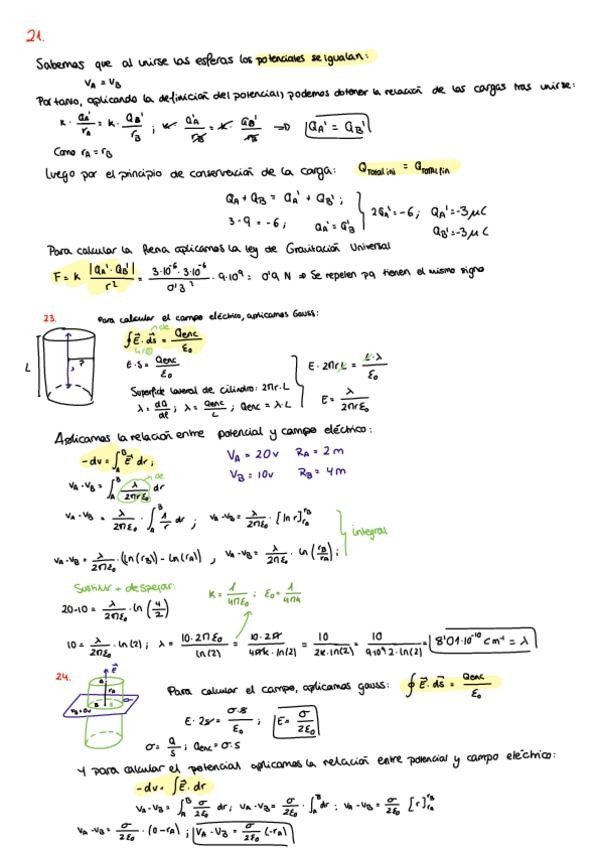 21.
Sabemos que al unirse las esferas los potenciales se igualan:
VA = VB
Por tanto, aplicando la definición del potencial, podemos obtener la relación de las cargas tras unirse:
K · QA'/rA = K · QB'/rB ; K · QA'/rB = K · QB'/rB => QA' = QB'
Como rA = rB
Luego por el principio de conservación de la carga: QTOTAL ini = QTOTAL fin
QA + QB = QA' + QB' ;
3 - 9 = -6 ; QA' = QB' } 2QA' = -6 ; QA' = -3 μC
QB' = -3 μC
Para calcular la Fuerza aplicamos la ley de Gravitación Universal
F = K |QA' · QB'|/r² = 3·10⁻⁶ · 3·10⁻⁶/0'3² · 9·10⁹ = 0'9 N => Se repelen pq tienen el mismo signo
23.
Para calcular el campo eléctrico, aplicamos Gauss:
∮ E · ds = Qenc/ε0
E · S = Qenc/ε0
E · 2πr·L = L·λ/ε0
L
r
Superficie lateral de cilindro: 2πr·L
λ = dQ/dl ; λ = Qenc/L ; Qenc = λ·L
E = λ/2πrε0
Aplicamos la relación entre potencial y campo eléctrico:
-dv = ∫AB E dr ;
VA = 20v RA = 2m
VB = 10v RB = 4m
VA - VB = ∫AB λ/2πrε0 dr
VA - VB = λ/2πε0 · ∫AB 1/r dr ; VA - VB = λ/2πε0 · [ln r]rA rB
integral
VA - VB = λ/2πε0 · (ln(rB) - ln(rA)) , VA - VB = λ/2πε0 · ln(rB/rA) ;
Sustituir + despejar:
K = 1/4πε0 ; ε0 = 1/4πk
20 - 10 = λ/2πε0 · ln(4/2)
10 = λ/2πε0 · ln(2) ; λ = 10·2πε0/ln(2) = 10·2π/4πk·ln(2) = 10/2k·ln(2) = 10/9·10⁹·2·ln(2) = 8'01·10⁻¹⁰ Cm⁻¹ = λ
24.
Para calcular el campo, aplicamos gauss: ∮ E · ds = Qenc/ε0
E · 2s = σ·s/ε0 ; E = σ/2ε0
σ = Q/S ; Qenc = σ·S
Y para calcular el potencial aplicamos la relación entre potencial y campo eléctrico:
-dv = ∫ E · dr
VA - VB = ∫AB σ/2ε0 dr ; VA - VB = σ/2ε0 · ∫AB dr ; VA - VB = σ/2ε0 [r]rA rB
VA - VB = σ/2ε0 · (0 - rA) ; VA - VB = σ/2ε0 (-rA)